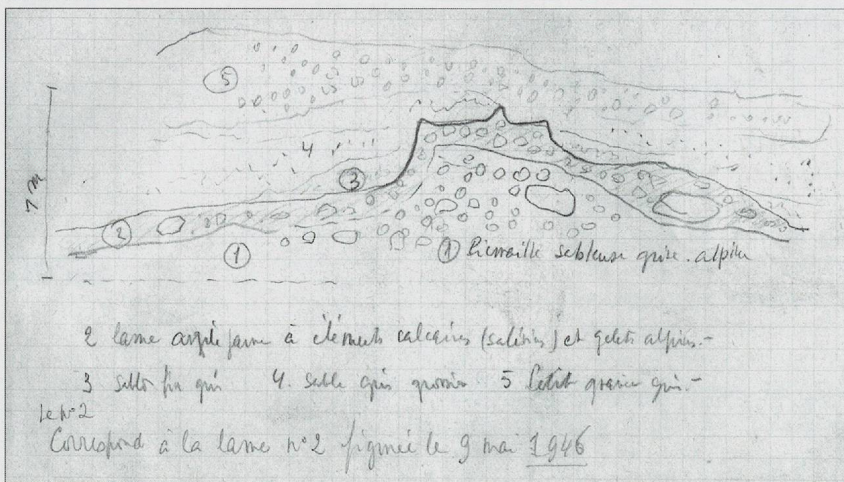 5
4
7 m
3
2
1
1 Pierraille sableuse grise. alpine
2 lame argile jaune à éléments calcaires (salévien) et galets alpins.-
3 sable fin gris 4. Sable gris grossier 5 Petit gravier gris.-
Le n°2
Correspond à la lame n°2 figurée le 9 mai 1946